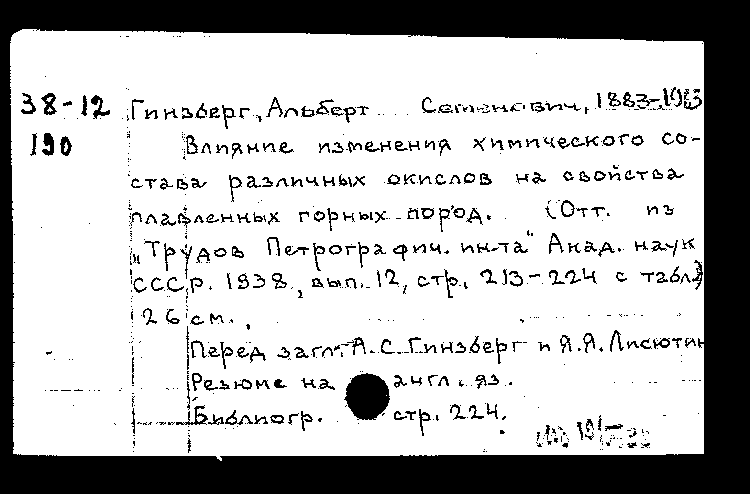 38-12 Гинзберг, Альберт Семенович, 1883-
190 Влияние изменения химического со-
става различных окислов на свойства
плавленных горных пород. (Отт. из
„Трудов Петрографич. ин-та“ Акад. наук
СССР. 1938, вып. 12, стр. 213-224 с табл.)
26 см.
Перед загл. А. С. Гинзберг и Я. Я. Лисютин
Резюме на англ. яз.
Библиогр. стр. 224.